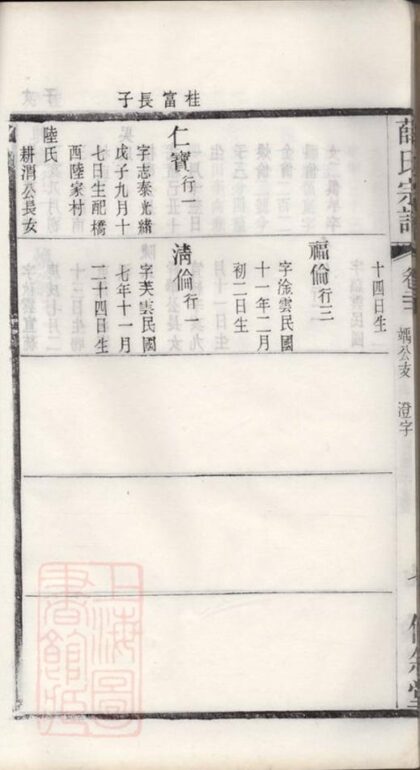 薛氏宗譜
澄字
十四日生
福倫行三
字淦雲民國
十一年二月
初二日生
桂富長子
仁寶行一
字志泰光緒
戊子九月十
七日生配橋
西陸家村
陸氏
耕渭公長女
清倫行一
字芙雲民國
七年十一月
二十四日生
上海圖
書館藏